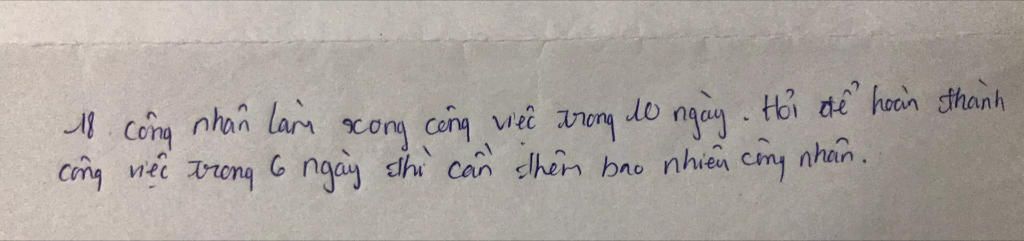 18 công nhân làm xong công việc trong 10 ngày. Hỏi để hoàn thành
công việc trong 6 ngày thì cần thêm bao nhiêu công nhân.